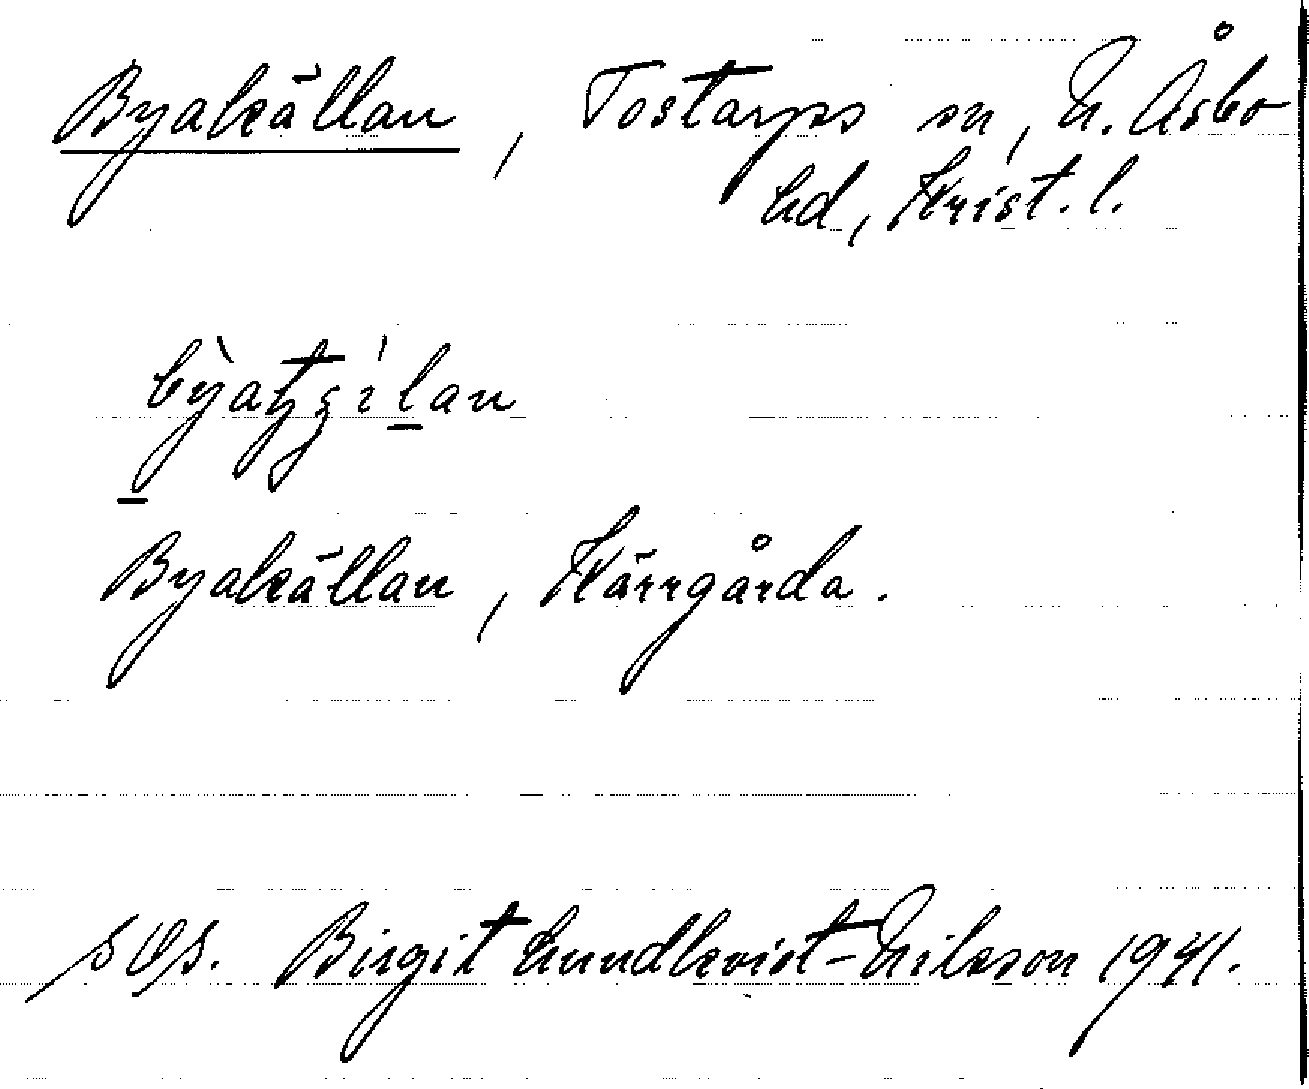 Byakällan, Tostarps sn, N. Åsbo
hd, Krist. l.
Byakällan, Kärrgårda.
Birgit Lundkvist-Nilsson 1941.